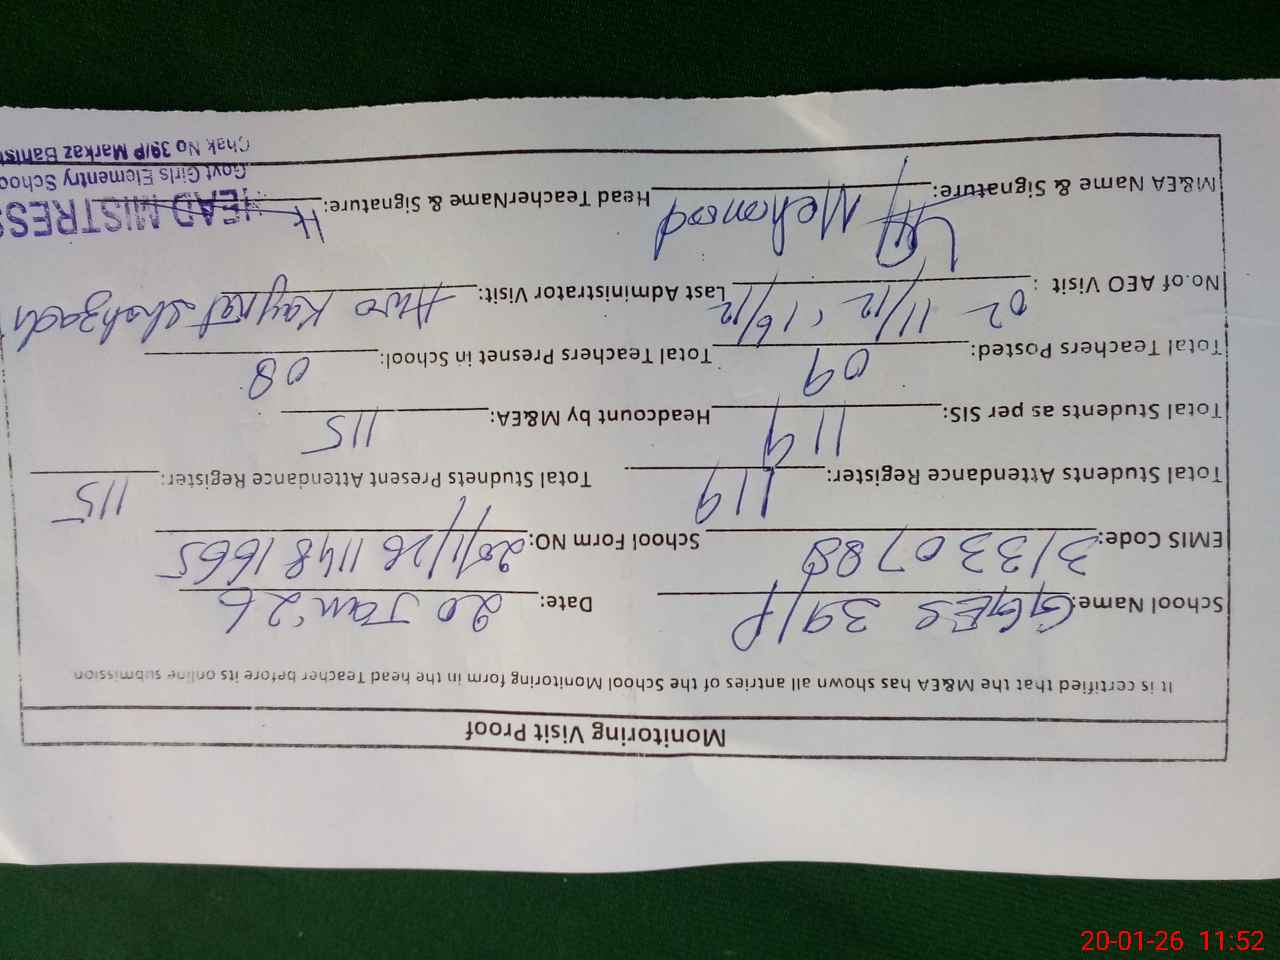 Monitoring Visit Proof
It is certified that the M&EA has shown all antries of the School Monitoring form in the head Teacher before its online submission
School Name: GGES 39/P Date: 20 Jan '26
EMIS Code: 31330788 School Form NO: 20/1/26 1148 1665
Total Students Attendance Register: 119 Total Studnets Present Attendance Register: 115
Total Students as per SIS: 119 Headcount by M&EA: 115
Total Teachers Posted: 09 Total Teachers Presnet in School: 08
No.of AEO Visit : 02 11/12, 16/12 Last Administrator Visit: Kaynat Shahzadi
M&EA Name & Signature: Mehmood Head TeacherName & Signature:
HEAD MISTRESS
Govt Girls Elementry Schoo
Chak No 39/P Markaz
20-01-26 11:52